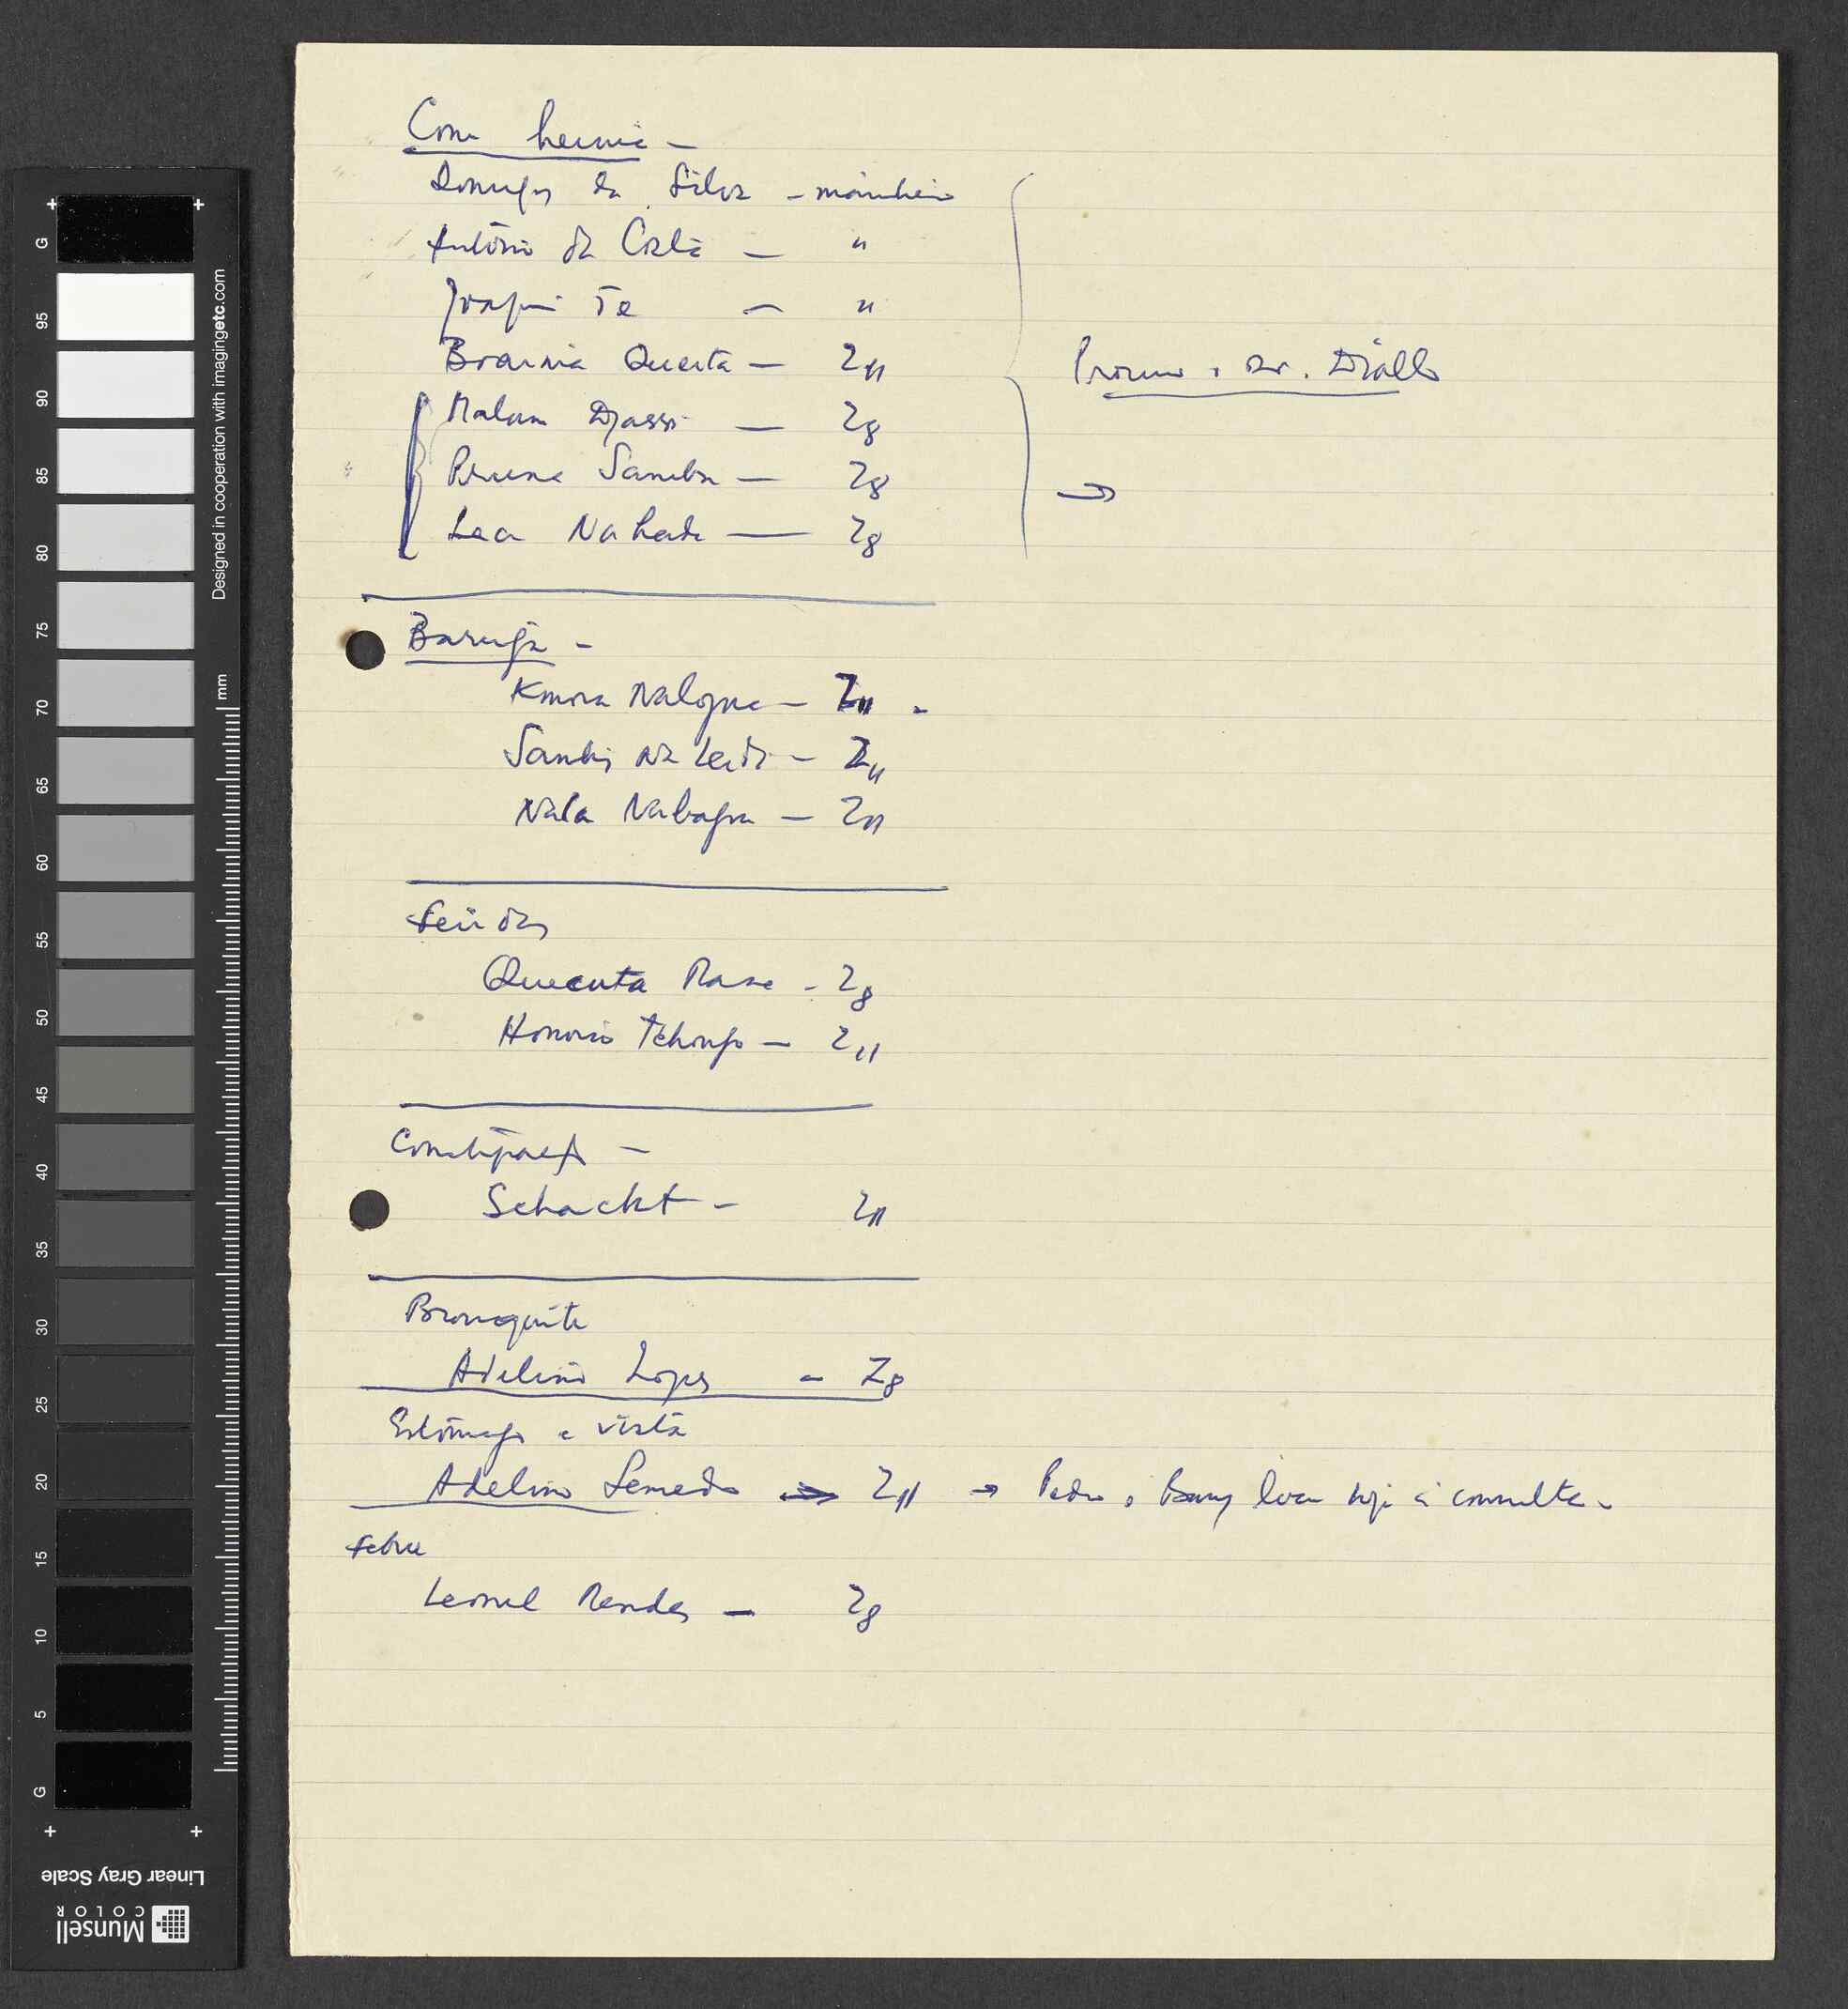 Com hernia -
Domingos da Silva - marinheiro
António da Costa - "
Joaquim Té - "
Braima Queita - Z11
Malam Djassi - Z8
Bruna Samba - Z8
Laa Nahada - Z8
Prevenir o Dr. Diallo
→
Barriga -
Kmora Nalogna - Z11 -
Samba Na - Z11
Nala Nabagna - Z11
Feridas
Quecuta Mane - Z8
Honorio Tchongo - Z11
Constipação -
Schackt - Z11
Bronquite
Adelino Lopes - Z8
Estômago e vista
Adelino Semedo → Z11 → Pedro o Barry hoje à consulta.
Febre
Leonel Mendes - Z8
Designed in cooperation with imagingetc.com
mm
G 95 90 85 80 75 70 65 60 55 50 45 40 35 30 25 20 15 10 5 G
Linear Gray Scale
Munsell
COLOR